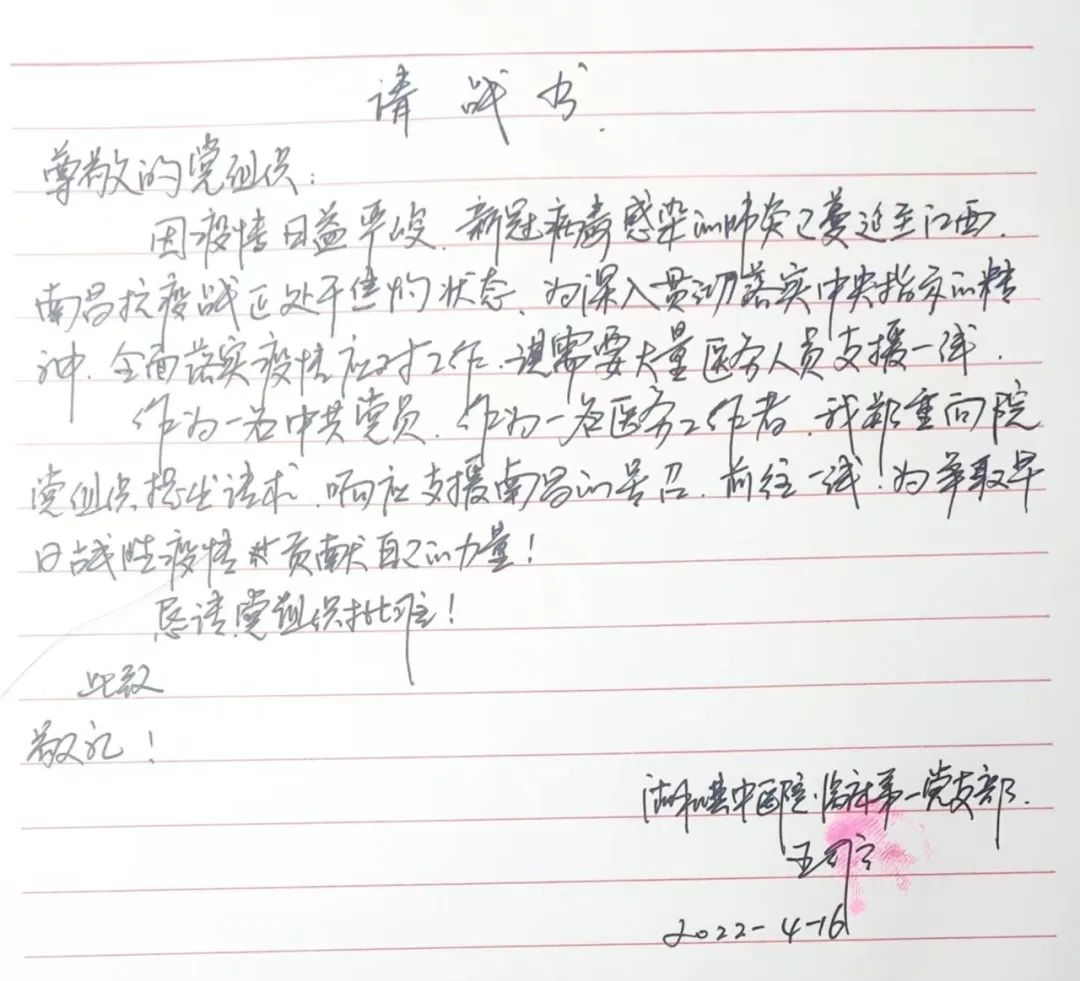 请战书.
尊敬的党组织:
因疫情日益严峻.新冠病毒感染的肺炎已蔓延至江西.
南昌抗疫战正处于焦灼状态、为深入贯彻落实中央指示的精
神.全面落实疫情应对工作.现需要大量医务人员支援一线.
作为一名中共党员.作为一名医务工作者.我郑重向院
党组织提出请求.响应支援南昌的号召.前往一线!为争取早
日战胜疫情贡献自己的力量!
恳请党组织批准!
此致
敬礼!
中医院·临床第一党支部.
2022-4-16